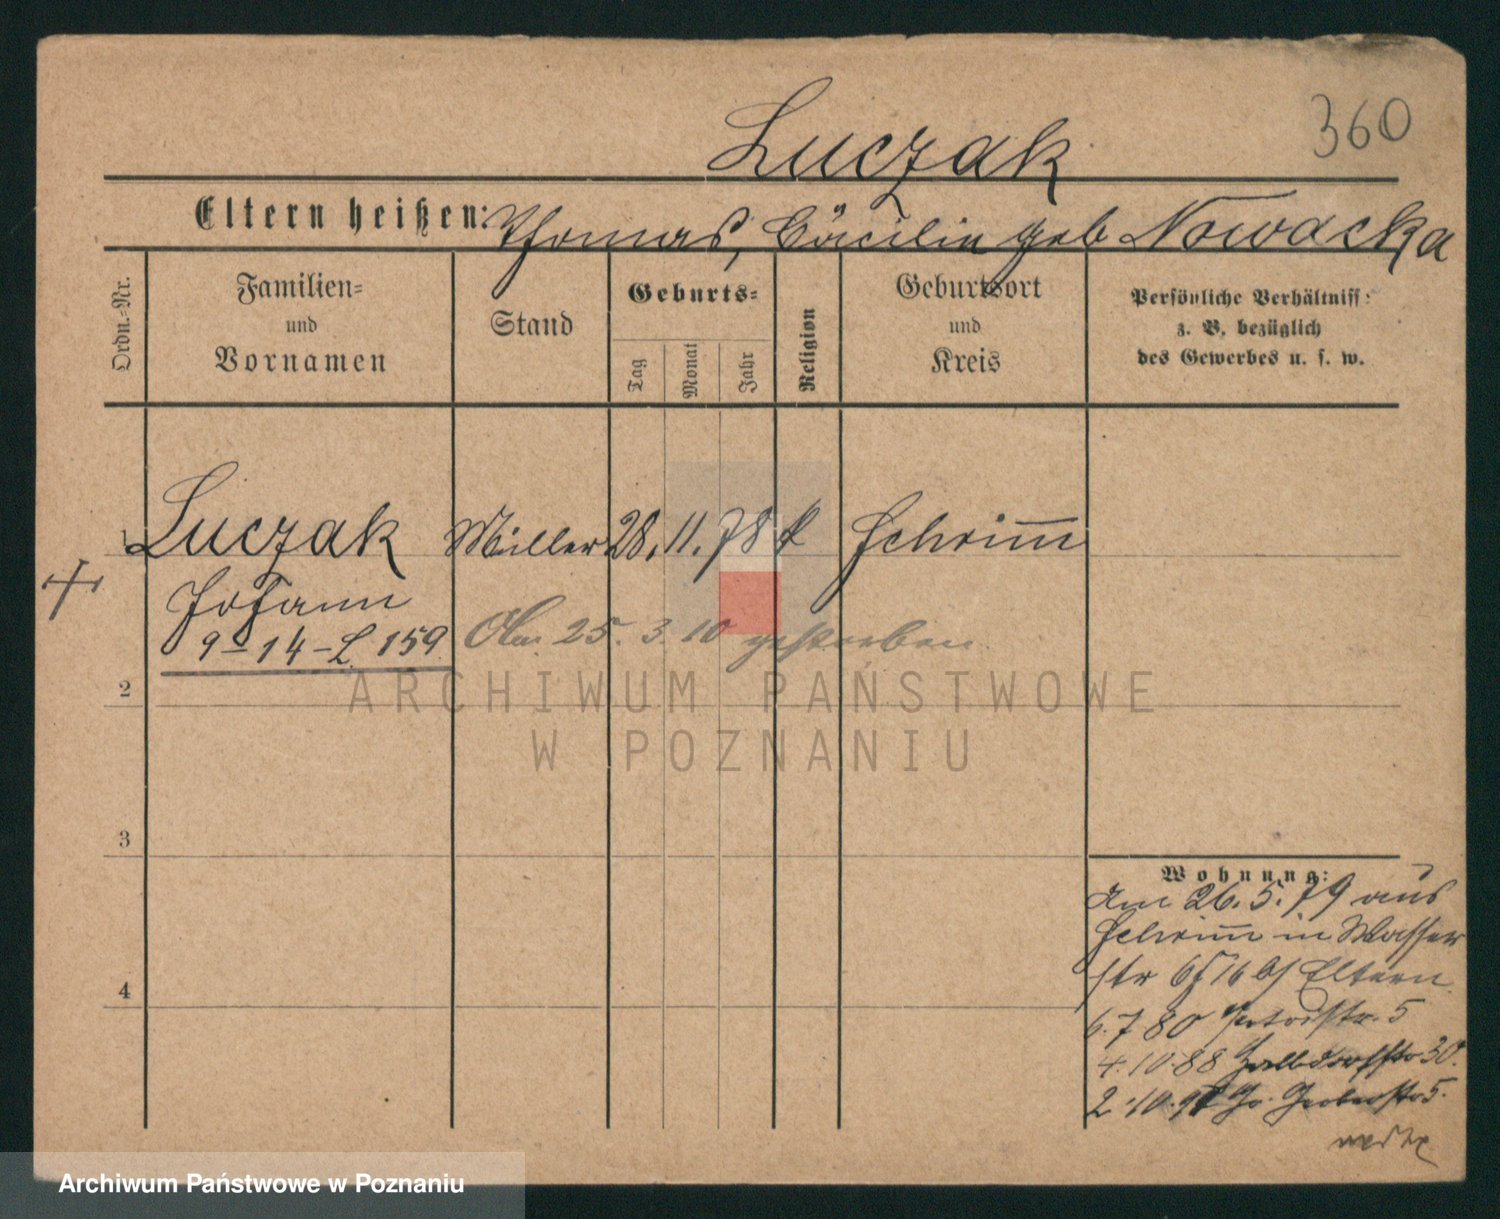 360
Luczak
Eltern heißen: Thomas, Cäcilia geb Nowacka
Ordn.-Nr.
Familien-
und
Vornamen
Stand
Geburts-
Tag
Monat
Jahr
Religion
Geburtsort
und
Kreis
Persönliche Verhältniss:
z. B. bezüglich
des Gewerbes u. s. w.
1 Luczak Müller 28. 11. 78 k Schrimm
Johann
14-L. 159
Am 25. 3. 10 gestorben
2
ARCHIWUM PAŃSTWOWE
W POZNANIU
3
4
Wohnung:
Am 26. 5. 79 aus
Schrimm in Wasser
str Eltern
6. 7 80 5
4. 10 88 Halbdorfstr 30.
2. 10. Gr. Gerberstr 5.
Archiwum Państwowe w Poznaniu